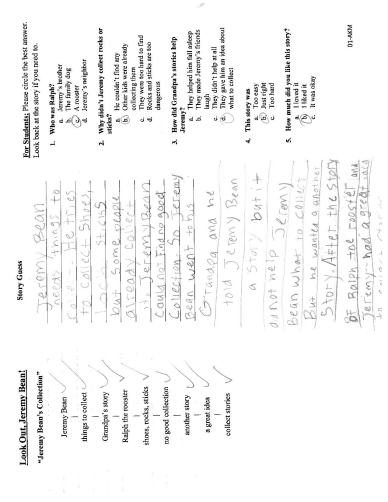 Look Out, Jeremy Bean!
"Jeremy Bean's Collection"
Jeremy Bean
things to collect
Grandpa's story
Ralph the rooster
shoes, rocks, sticks
no good collection
another story
a great idea
collect stories
Story Guess
Jeremy Bean
needs things to
He tries
to collect Shoes,
but some people
already collect
Jeremy Bean
could not find no good
collection So Jeremy
Bean went to his
Grandpa and he
told Jeremy Bean
a story but it
did not help Jeremy
Bean what to collect
But he wanted a another
Story. After the story
of Ralph the rooster and
Jeremy had a great
For Students: Please circle the best answer.
Look back at the story if you need to.
1. Who was Ralph?
a. Jeremy's brother
b. The family dog
c. A rooster
d. Jeremy's neighbor
2. Why didn't Jeremy collect rocks or
sticks?
a. He couldn't find any
b. Other kids were already
collecting them
c. They were too hard to find
d. Rocks and sticks are too
dangerous
3. How did Grandpa's stories help
Jeremy?
a. They helped him fall asleep
b. They made Jeremy's friends
laugh
c. They didn't help at all
d. They gave him an idea about
what to collect
4. This story was
a. Too easy
b. Just right
c. Too hard
5. How much did you like this story?
a. I loved it
b. I liked it
c. It was okay
D1-AKM